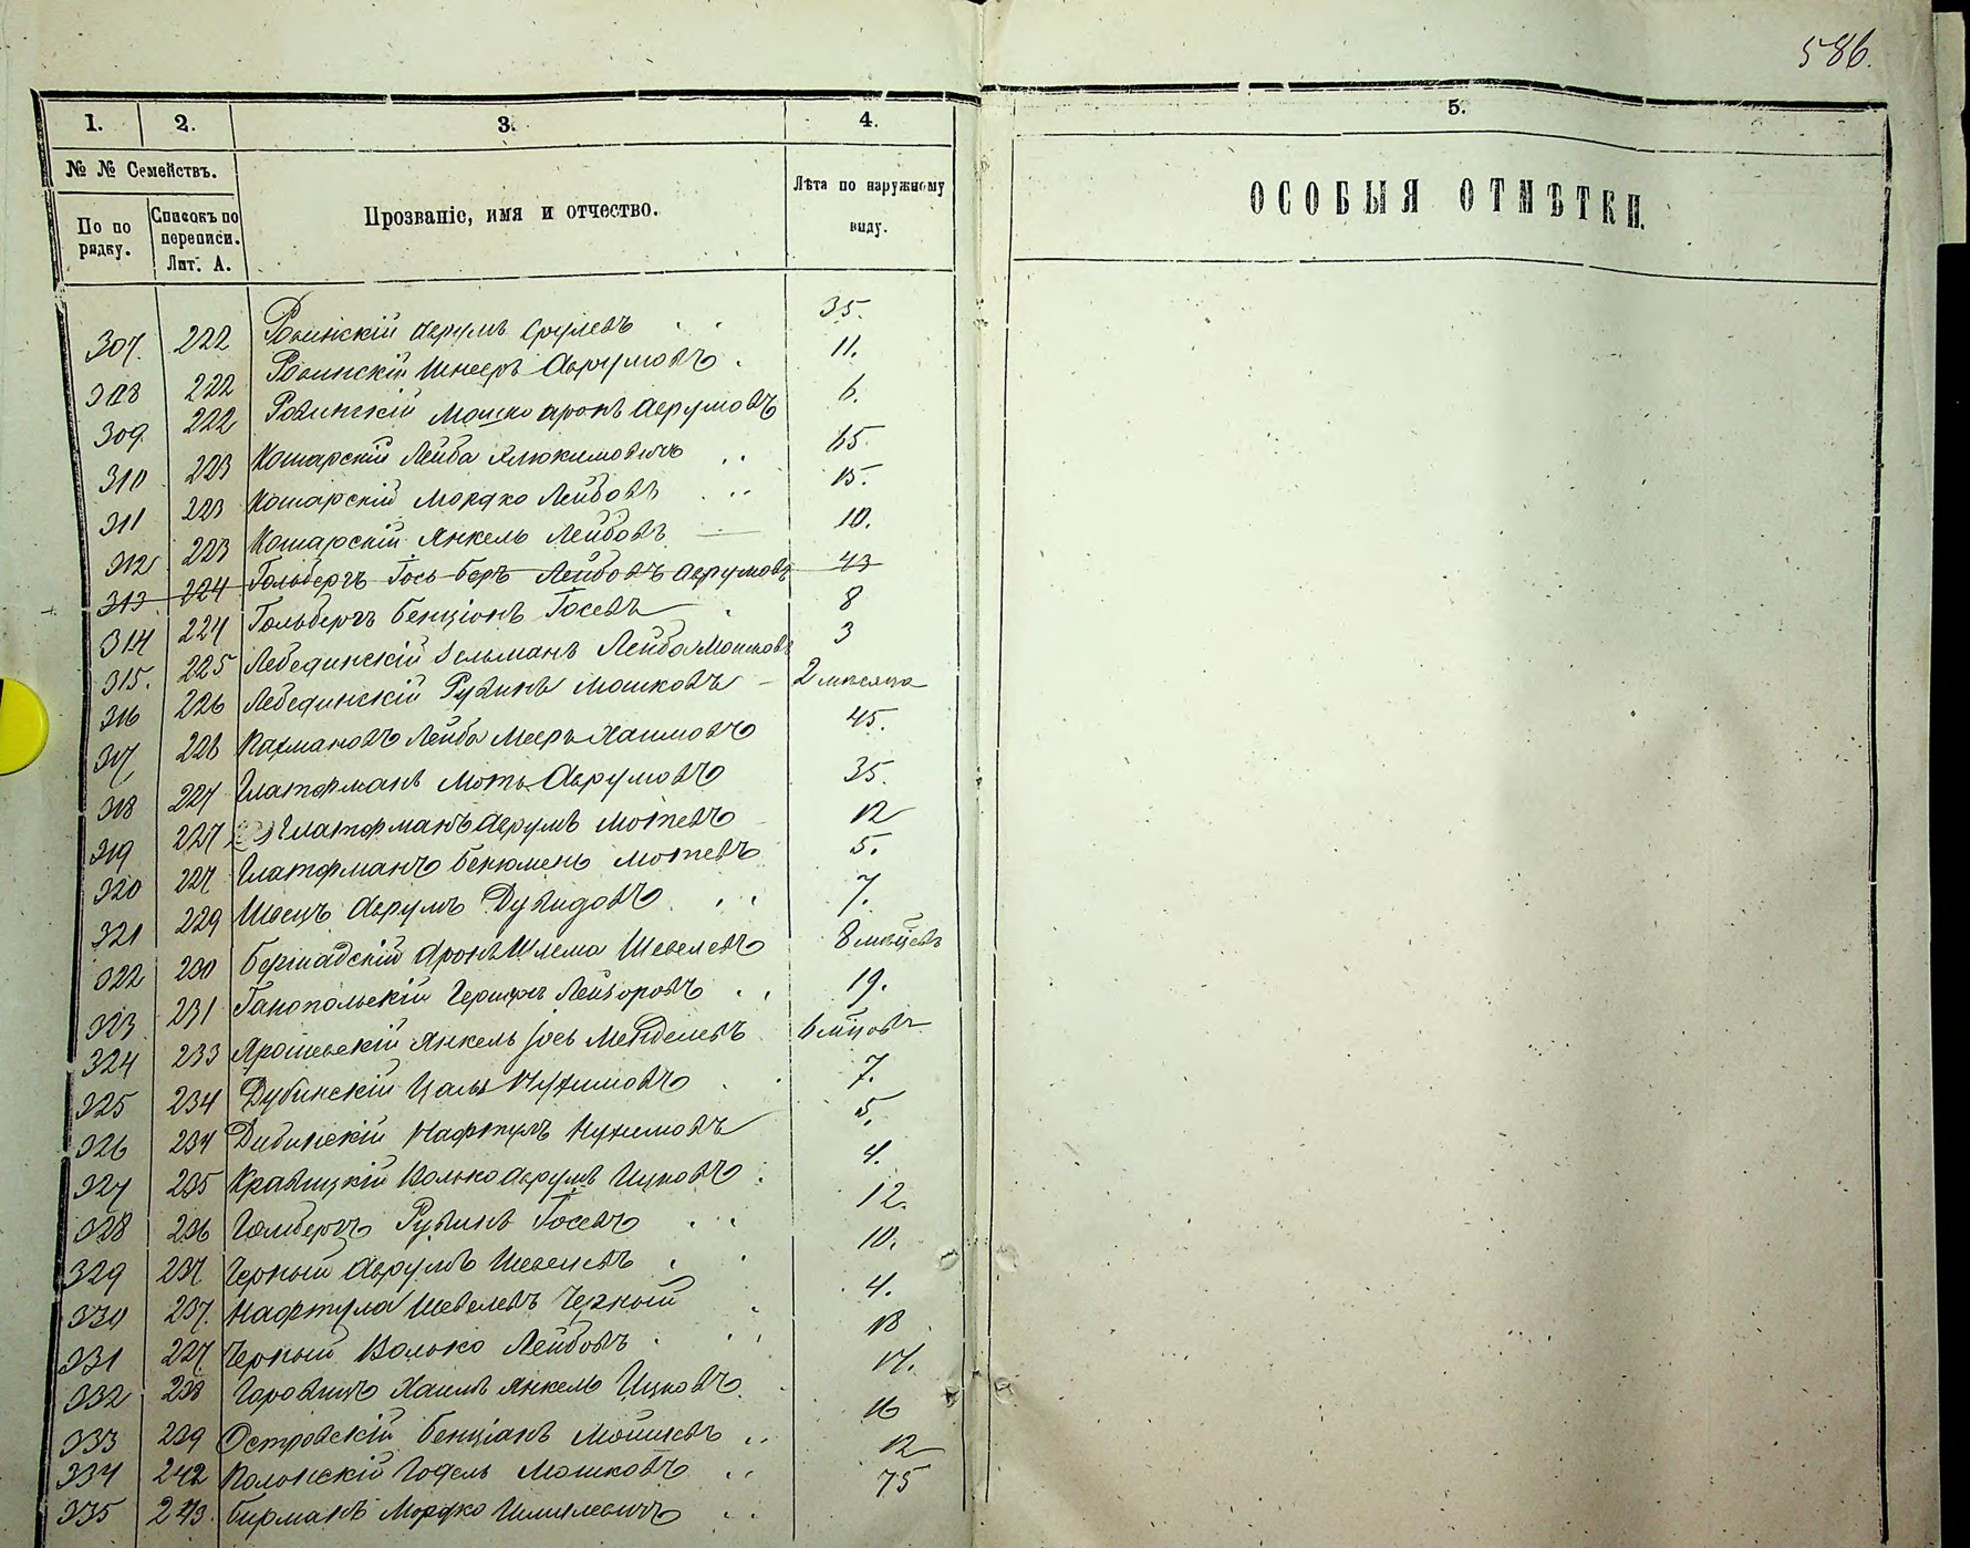 586.
1. 2. 3. 4. 5.
№ № Семействъ.
По по рядку.
Списокъ по переписи. Лит. А.
Прозваніе, имя и отчество.
Лѣта по наружному виду.
ОСОБЫЯ ОТМѢТКИ.
307. 222 Ровинскій Аврумъ Срулевъ 35.
308 222 Ровинскій Шнееръ Аврумовъ 11.
309. 222 Ровинскій Мошко Аронъ Аврумовъ 6.
310 223 Кошарскій Лейба 65
311 223 Кошарскій Мордко Лейбовъ 15.
312 223 Кошарскій Янкель Лейбовъ 10.
313. 224 Гольбергъ Іось-Беръ Лейбовъ Аврумовъ 43
314 224 Гольбергъ Бенціонъ Іосевъ 8
315. 225 Лебединскій Зельманъ Лейба Мошковъ 3
316 226 Лебединскій Рувинъ Мошковъ 2 мѣсяца
317 228 Рахмановъ Лейба Мееръ Хаимовъ 45.
318 227 Глатфманъ Моть Аврумовъ 35.
319 227 Глатфманъ Аврумъ Мотевъ 12
320 227 Глатфманъ Бенюмень Мотевъ 5.
321 229 Швецъ Аврумъ Дувидовъ 7.
322 230 Бершадскій Аронъ Шлема Шевелевъ 8
323 231 Ганопольскій Гершъ Лейзоровъ 19.
324 233 Ярошевскій Янкель Іось Менделевъ 6
325 234 Дубинскій Цаль Нухимовъ 7.
326 234 Дубинскій Нафтулъ Нухимовъ 5.
327 235 Кравицкій Волько Аврумъ Ицковъ 4.
328 236 Голбергъ Рувинъ Іосевъ 12.
329 237 Черный Аврумъ Шевелевъ 10.
330 237. Нафтула Шевелевъ Черный 4.
331 237 Черный Волько Лейбовъ 18
332 238 Горовицъ Хаимъ Янкель Ицковъ 17.
333 239 Островскій Бенціанъ Мошковъ 16
334 242 Полонскій Годель Мошковъ 12
335 243. Бирманъ Мордко 75